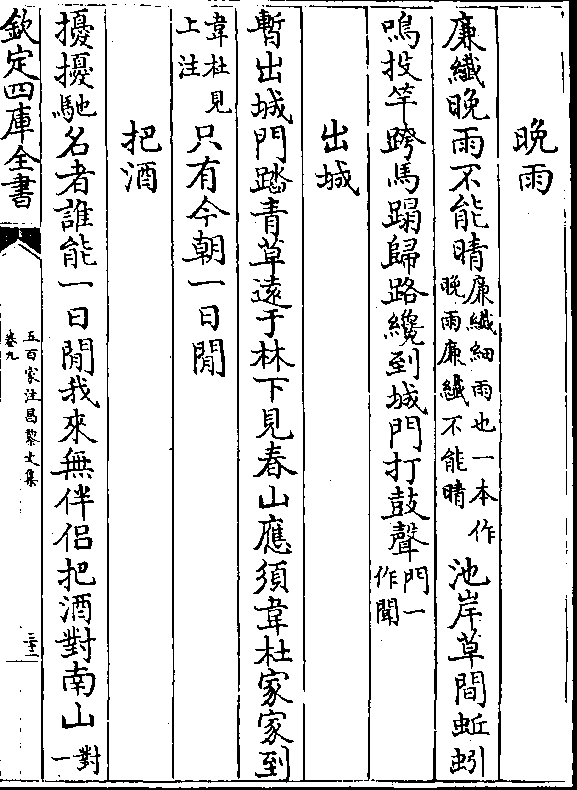 晚雨
廉纖晚雨不能晴廉纖細雨也一本作晚雨廉纖不能晴池岸草間蚯蚓
鳴投竿跨馬蹋歸路纔到城門打鼓聲門一作聞
出城
暫出城門踏青草遠于林下見春山應須韋杜家家到
韋杜見上注只有今朝一日閒
把酒
擾擾馳名者誰能一日閒我來無伴侣把酒對南山對一
欽定四庫全書
五百家注昌黎文集
卷九
三十二